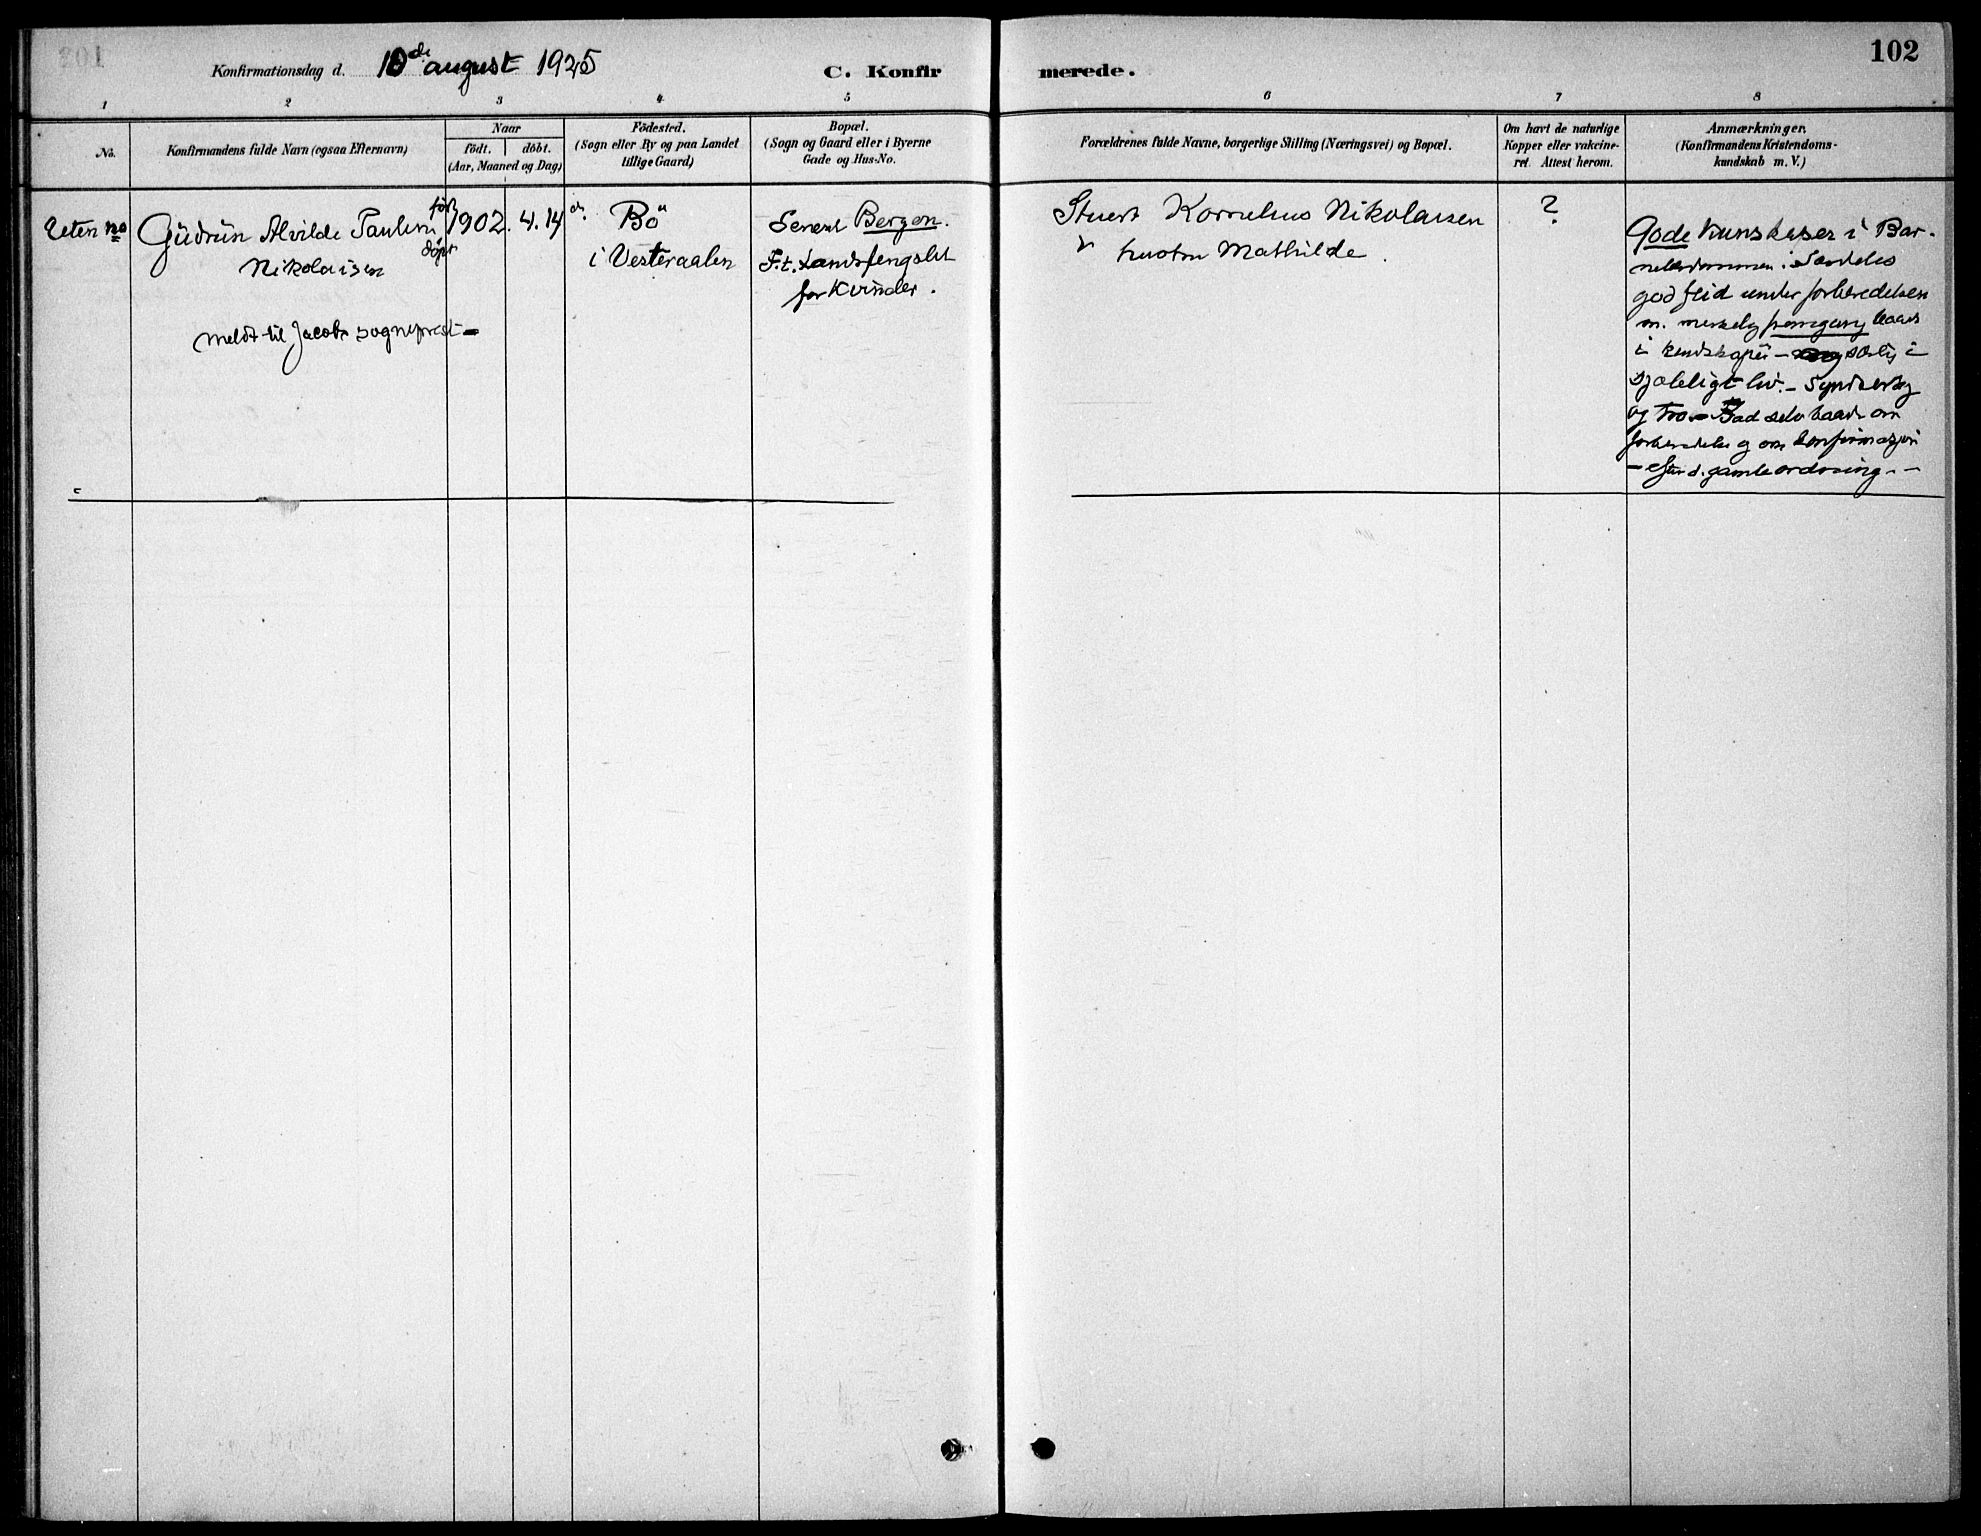 102
Konfirmationsdag d. 10de august 1925
C. Konfir merede.
1 2 3 4 5 6 7 8
No.
Konfirmandens fulde Navn (ogsaa Efternavn)
Naar
födt. döbt.
(Aar, Maaned og Dag)
Födested.
(Sogn eller By og paa Landet
tillige Gaard)
Bopæl.
(Sogn og Gaard eller i Byerne
Gade og Hus-No.
Forældrenes fulde Navne, borgerlige Stilling (Næringsvei) og Bopæl.
Om havt de naturlige
Kopper eller vakcine-
ret. Attest herom.
Anmærkninger.
(Konfirmandens Kristendoms-
kundskab m. V.)
Uten no
Gudrun Alvilde Pauline
Nikolaisen
født
døpt
meldt til Jacobs sogneprest
1902. 4. 14
Bö
i Vesteraalen
Senest Bergen.
F.t. Landsfengslet
for Kvinder.
Stuert Kornelius Nikolaisen
hustru Mathilde
?
Gode kunskaper i Bar-
nelærdommen. Særdeles
god flid under forberedelsen
m. merkelig fremgang baade
i kundskaper – særlig i
sjæleligt liv. – Synds
og Tro – Bad selv baade om
forberedelse og om konfirmasjon
– efter d. gamle ordning. –